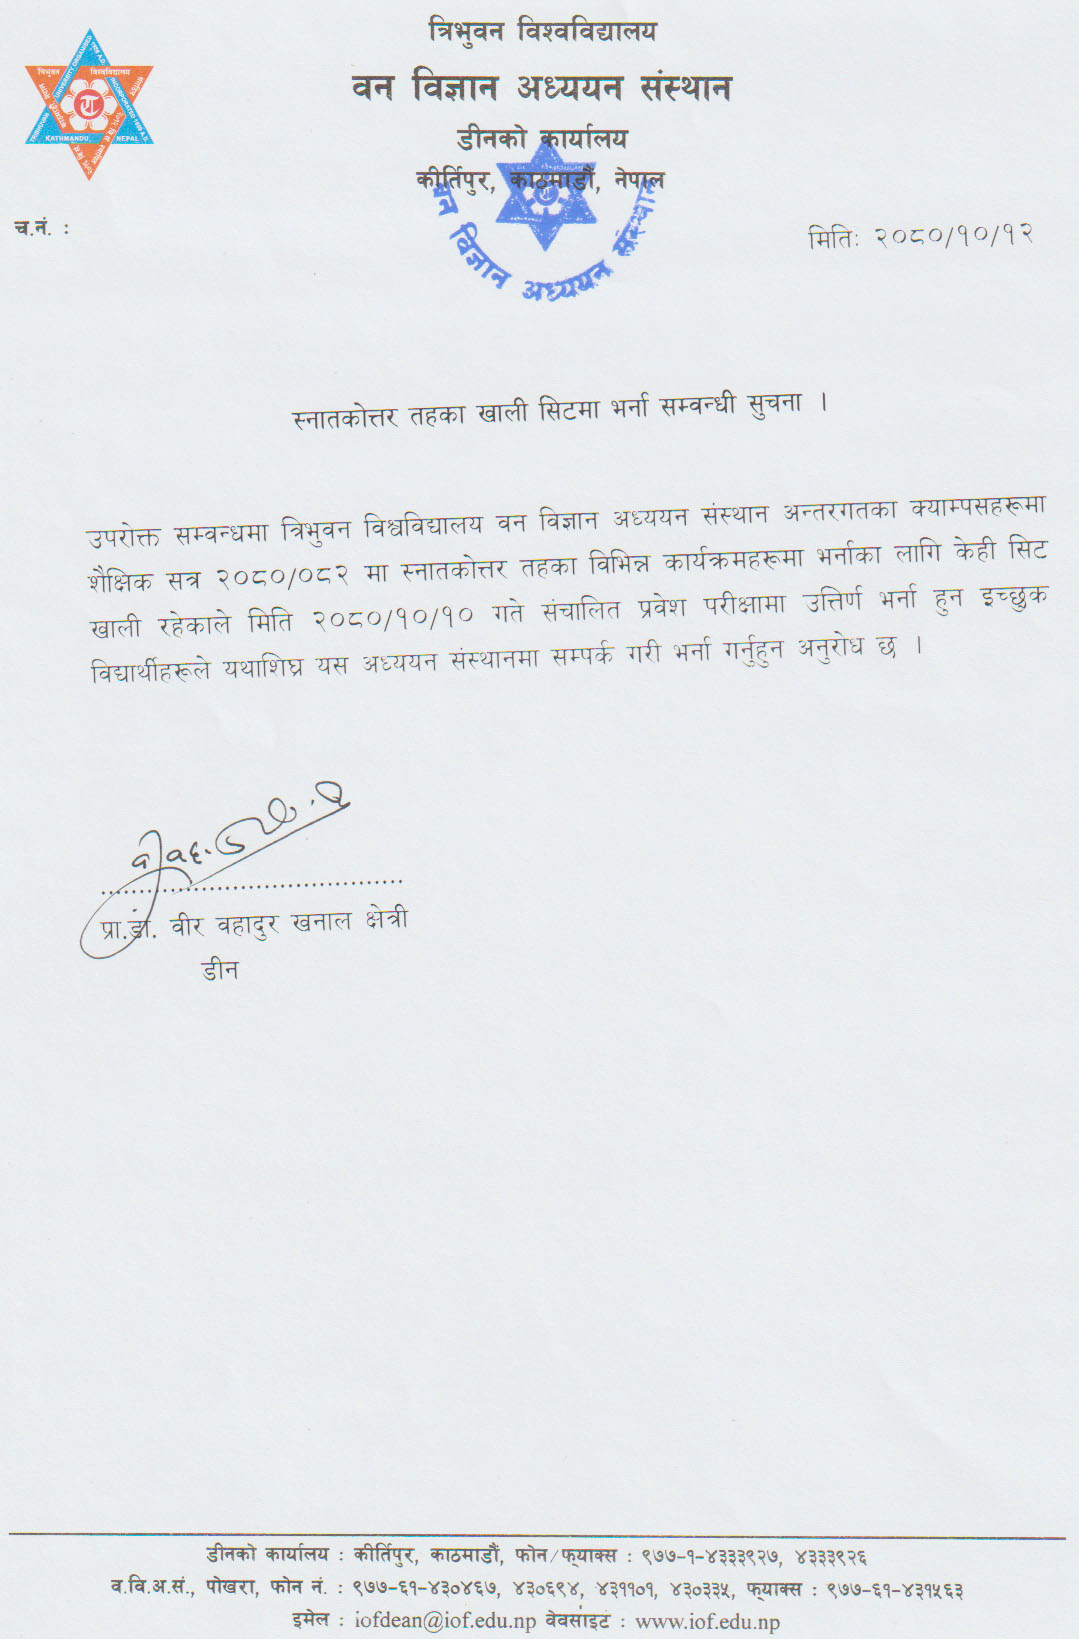 त्रिभुवन विश्वविद्यालय
वन विज्ञान अध्ययन संस्थान
डीनको कार्यालय
कीर्तिपुर, काठमाडौं, नेपाल
वन विज्ञान अध्ययन संस्थान
च.नं. :
मितिः २०८०/१०/१२
स्नातकोत्तर तहका खाली सिटमा भर्ना सम्वन्धी सुचना ।
उपरोक्त सम्वन्धमा त्रिभुवन विश्वविद्यालय वन विज्ञान अध्ययन संस्थान अन्तरगतका क्याम्पसहरूमा
शैक्षिक सत्र २०८०/०८२ मा स्नातकोत्तर तहका विभिन्न कार्यक्रमहरूमा भर्नाका लागि केही सिट
खाली रहेकाले मिति २०८०/१०/१० गते संचालित प्रवेश परीक्षामा उत्तिर्ण भर्ना हुन इच्छुक
विद्यार्थीहरूले यथाशिघ्र यस अध्ययन संस्थानमा सम्पर्क गरी भर्ना गर्नुहुन अनुरोध छ ।
प्रा.डा. वीर वहादुर खनाल क्षेत्री
डीन
डीनको कार्यालय : कीर्तिपुर, काठमाडौं, फोन/फ्याक्स : ९७७-१-४३३३९२७, ४३३३९२६
व.वि.अ.सं., पोखरा, फोन नं. : ९७७-६१-४३०४६७, ४३०६९४, ४३११०१, ४३०३३५, फ्याक्स : ९७७-६१-४३१५६३
इमेल : iofdean@iof.edu.np वेवसाइट : www.iof.edu.np